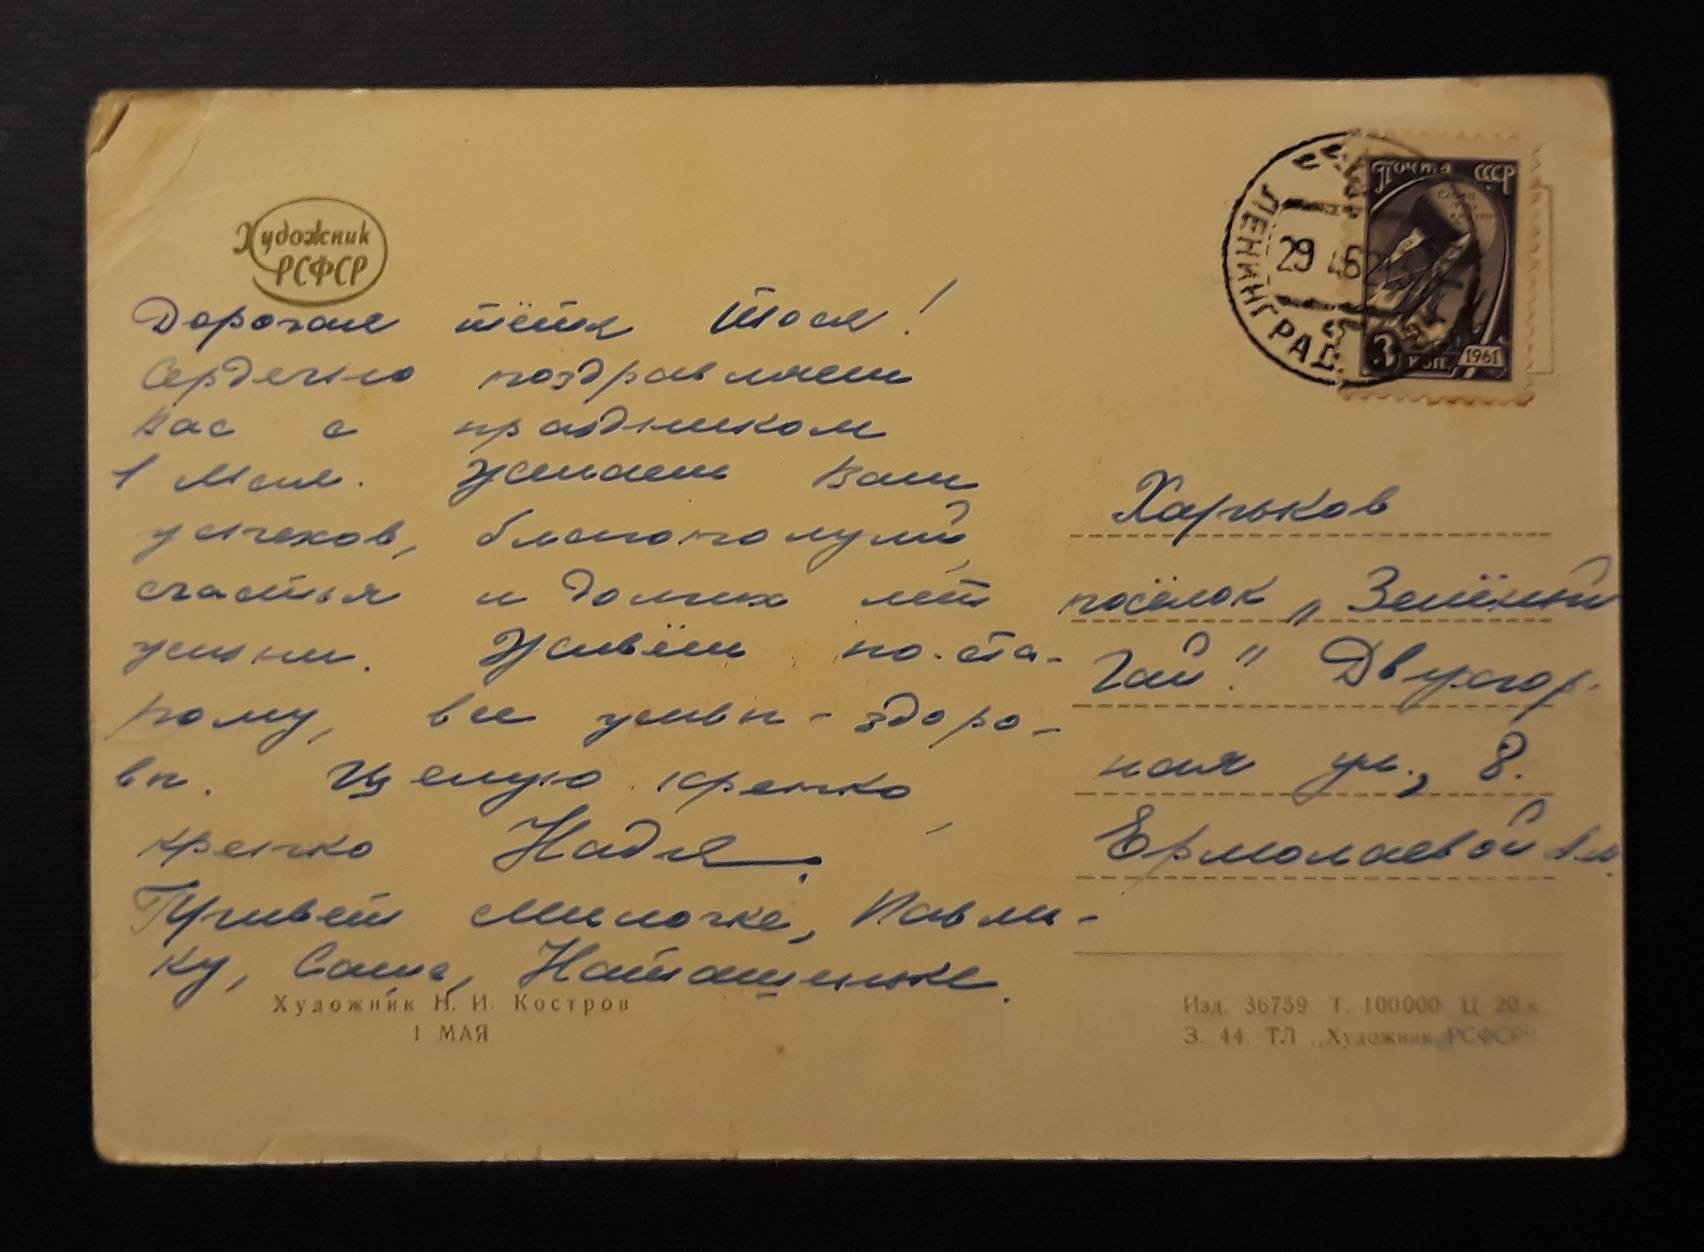 Художник
РСФСР
Дорогая тётя Тося!
Сердечно поздравляем
Вас с праздником
1 Мая. Желаем Вам
успехов, благополучий,
счастья и долгих лет
жизни. Живём по-ста-
рому, все живы-здоро-
вы. Целую крепко,
крепко Надя.
Привет Милочке, Павли-
ку, Саше, Наташеньке.
Художник Н. И. Костров
1 МАЯ
ЛЕНИНГРАД
29 4 6
Почта СССР
3 коп 1961
Харьков
посёлок „Зелёный
Гай." Двухгор-
ная ул., 8.
Ермолаевой
Изд. 36759. Т. 100000. Ц. 20 к.
З. 44. ТЛ „Художник РСФСР"